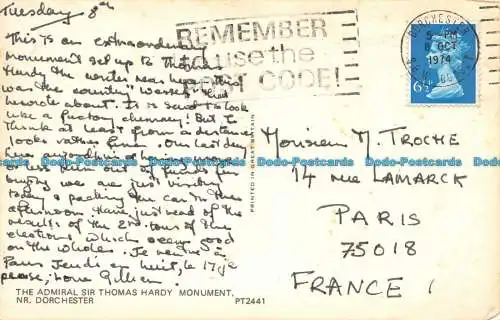 Tuesday 8th
This is an extraordinary
monument set up to Thomas
Hardy the writer near here. This
was the country "Wessex" that
he wrote about. It is said to look
like a factory chimney! But to
think at least from a distance
looks rather fine. Our last day
here
or less run out of funds for
buying we are just visiting
today & packing the car in the
afternoon. Have just read of the
results of the 2nd tour of the
elections which seem good
on the whole. Je rentre à
Paris Jeudi en huit, le 17
please, love Gillian.
THE ADMIRAL SIR THOMAS HARDY MONUMENT,
NR. DORCHESTER
PT2441
PRINTED IN GREAT BRITAIN
REMEMBER
to use the
POST CODE!
DORCHESTER
5 - PM
8 OCT
1974
6½
Monsieur M. TROCHE
14 rue LAMARCK
PARIS
75018
FRANCE
Dodo-Postcards Dodo-Postcards Dodo-Postcards Dodo-Postcards Dodo-Postcards